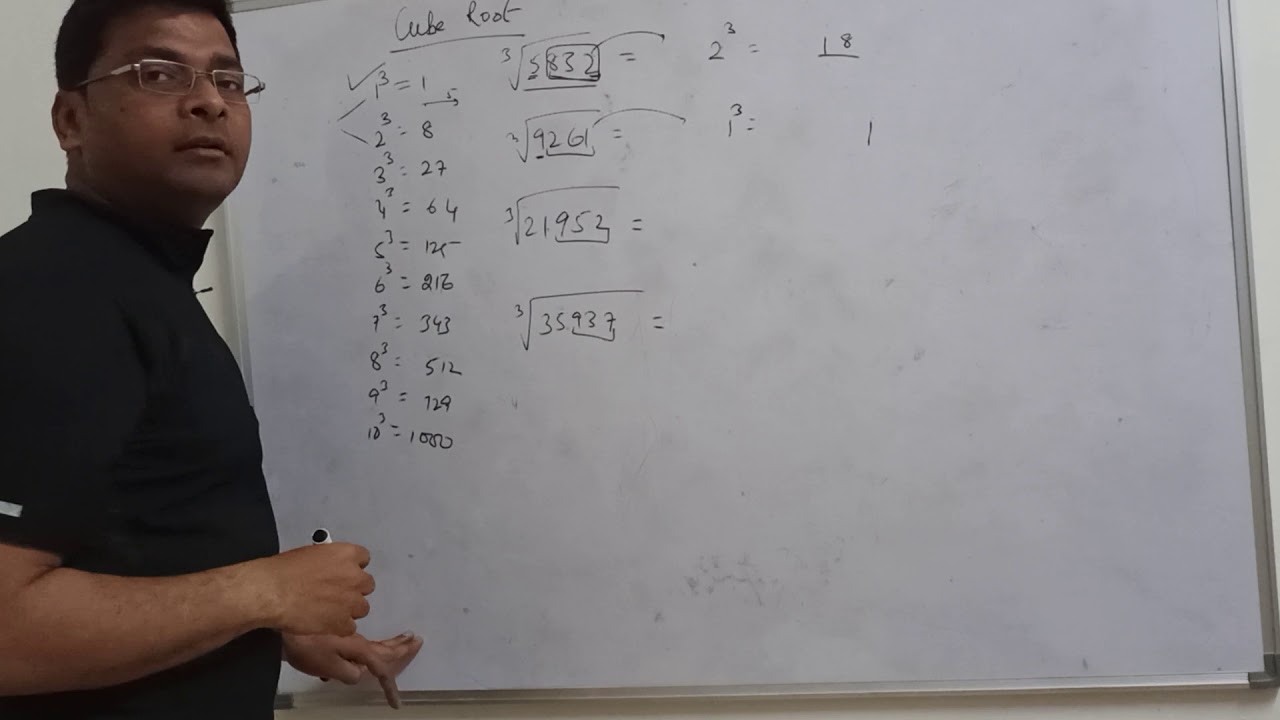 Cube Root
1³ = 1
5
2³ = 8
3³ = 27
4³ = 64
5³ = 125
6³ = 216
7³ = 343
8³ = 512
9³ = 729
10³ = 1000
³√5832 = 2³ = 18
³√9261 = 1³ = 1
³√21952 =
³√35937 =